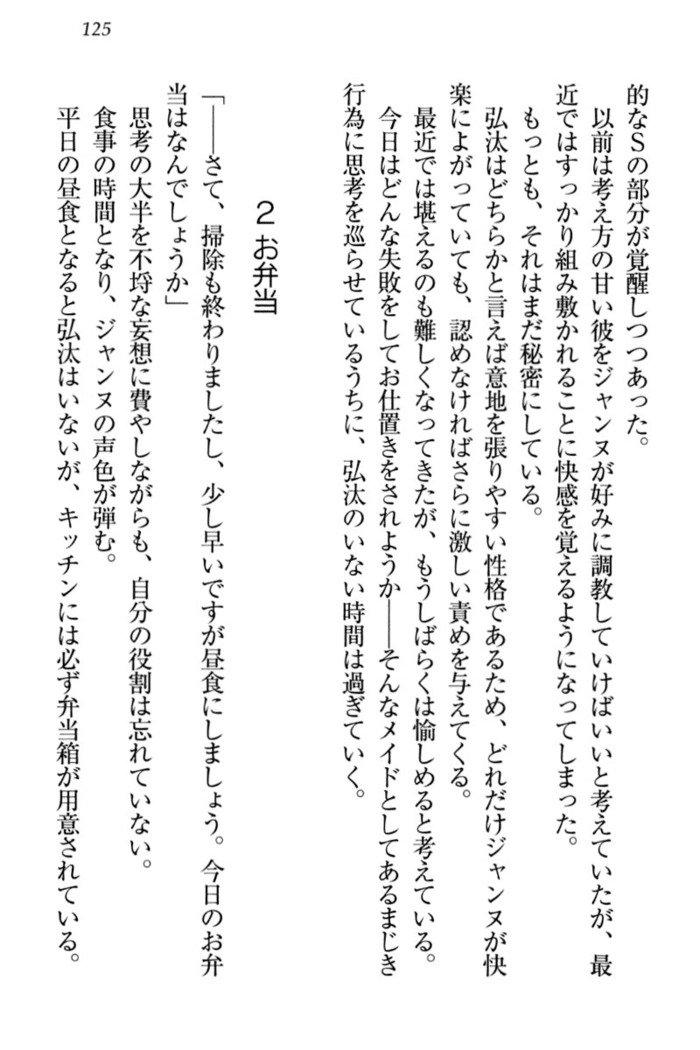 125
的なSの部分が覚醒しつつあった。
以前は考え方の甘い彼をジャンヌが好みに調教していけばいいと考えていたが、最
近ではすっかり組み敷かれることに快感を覚えるようになってしまった。
もっとも、それはまだ秘密にしている。
弘汰はどちらかと言えば意地を張りやすい性格であるため、どれだけジャンヌが快
楽によがっていても、認めなければさらに激しい責めを与えてくる。
最近では堪えるのも難しくなってきたが、もうしばらくは愉しめると考えている。
今日はどんな失敗をしてお仕置きをされようか――そんなメイドとしてあるまじき
行為に思考を巡らせているうちに、弘汰のいない時間は過ぎていく。
2 お弁当
「――さて、掃除も終わりましたし、少し早いですが昼食にしましょう。今日のお弁
当はなんでしょうか」
思考の大半を不埒な妄想に費やしながらも、自分の役割は忘れていない。
食事の時間となり、ジャンヌの声色が弾む。
平日の昼食となると弘汰はいないが、キッチンには必ず弁当箱が用意されている。